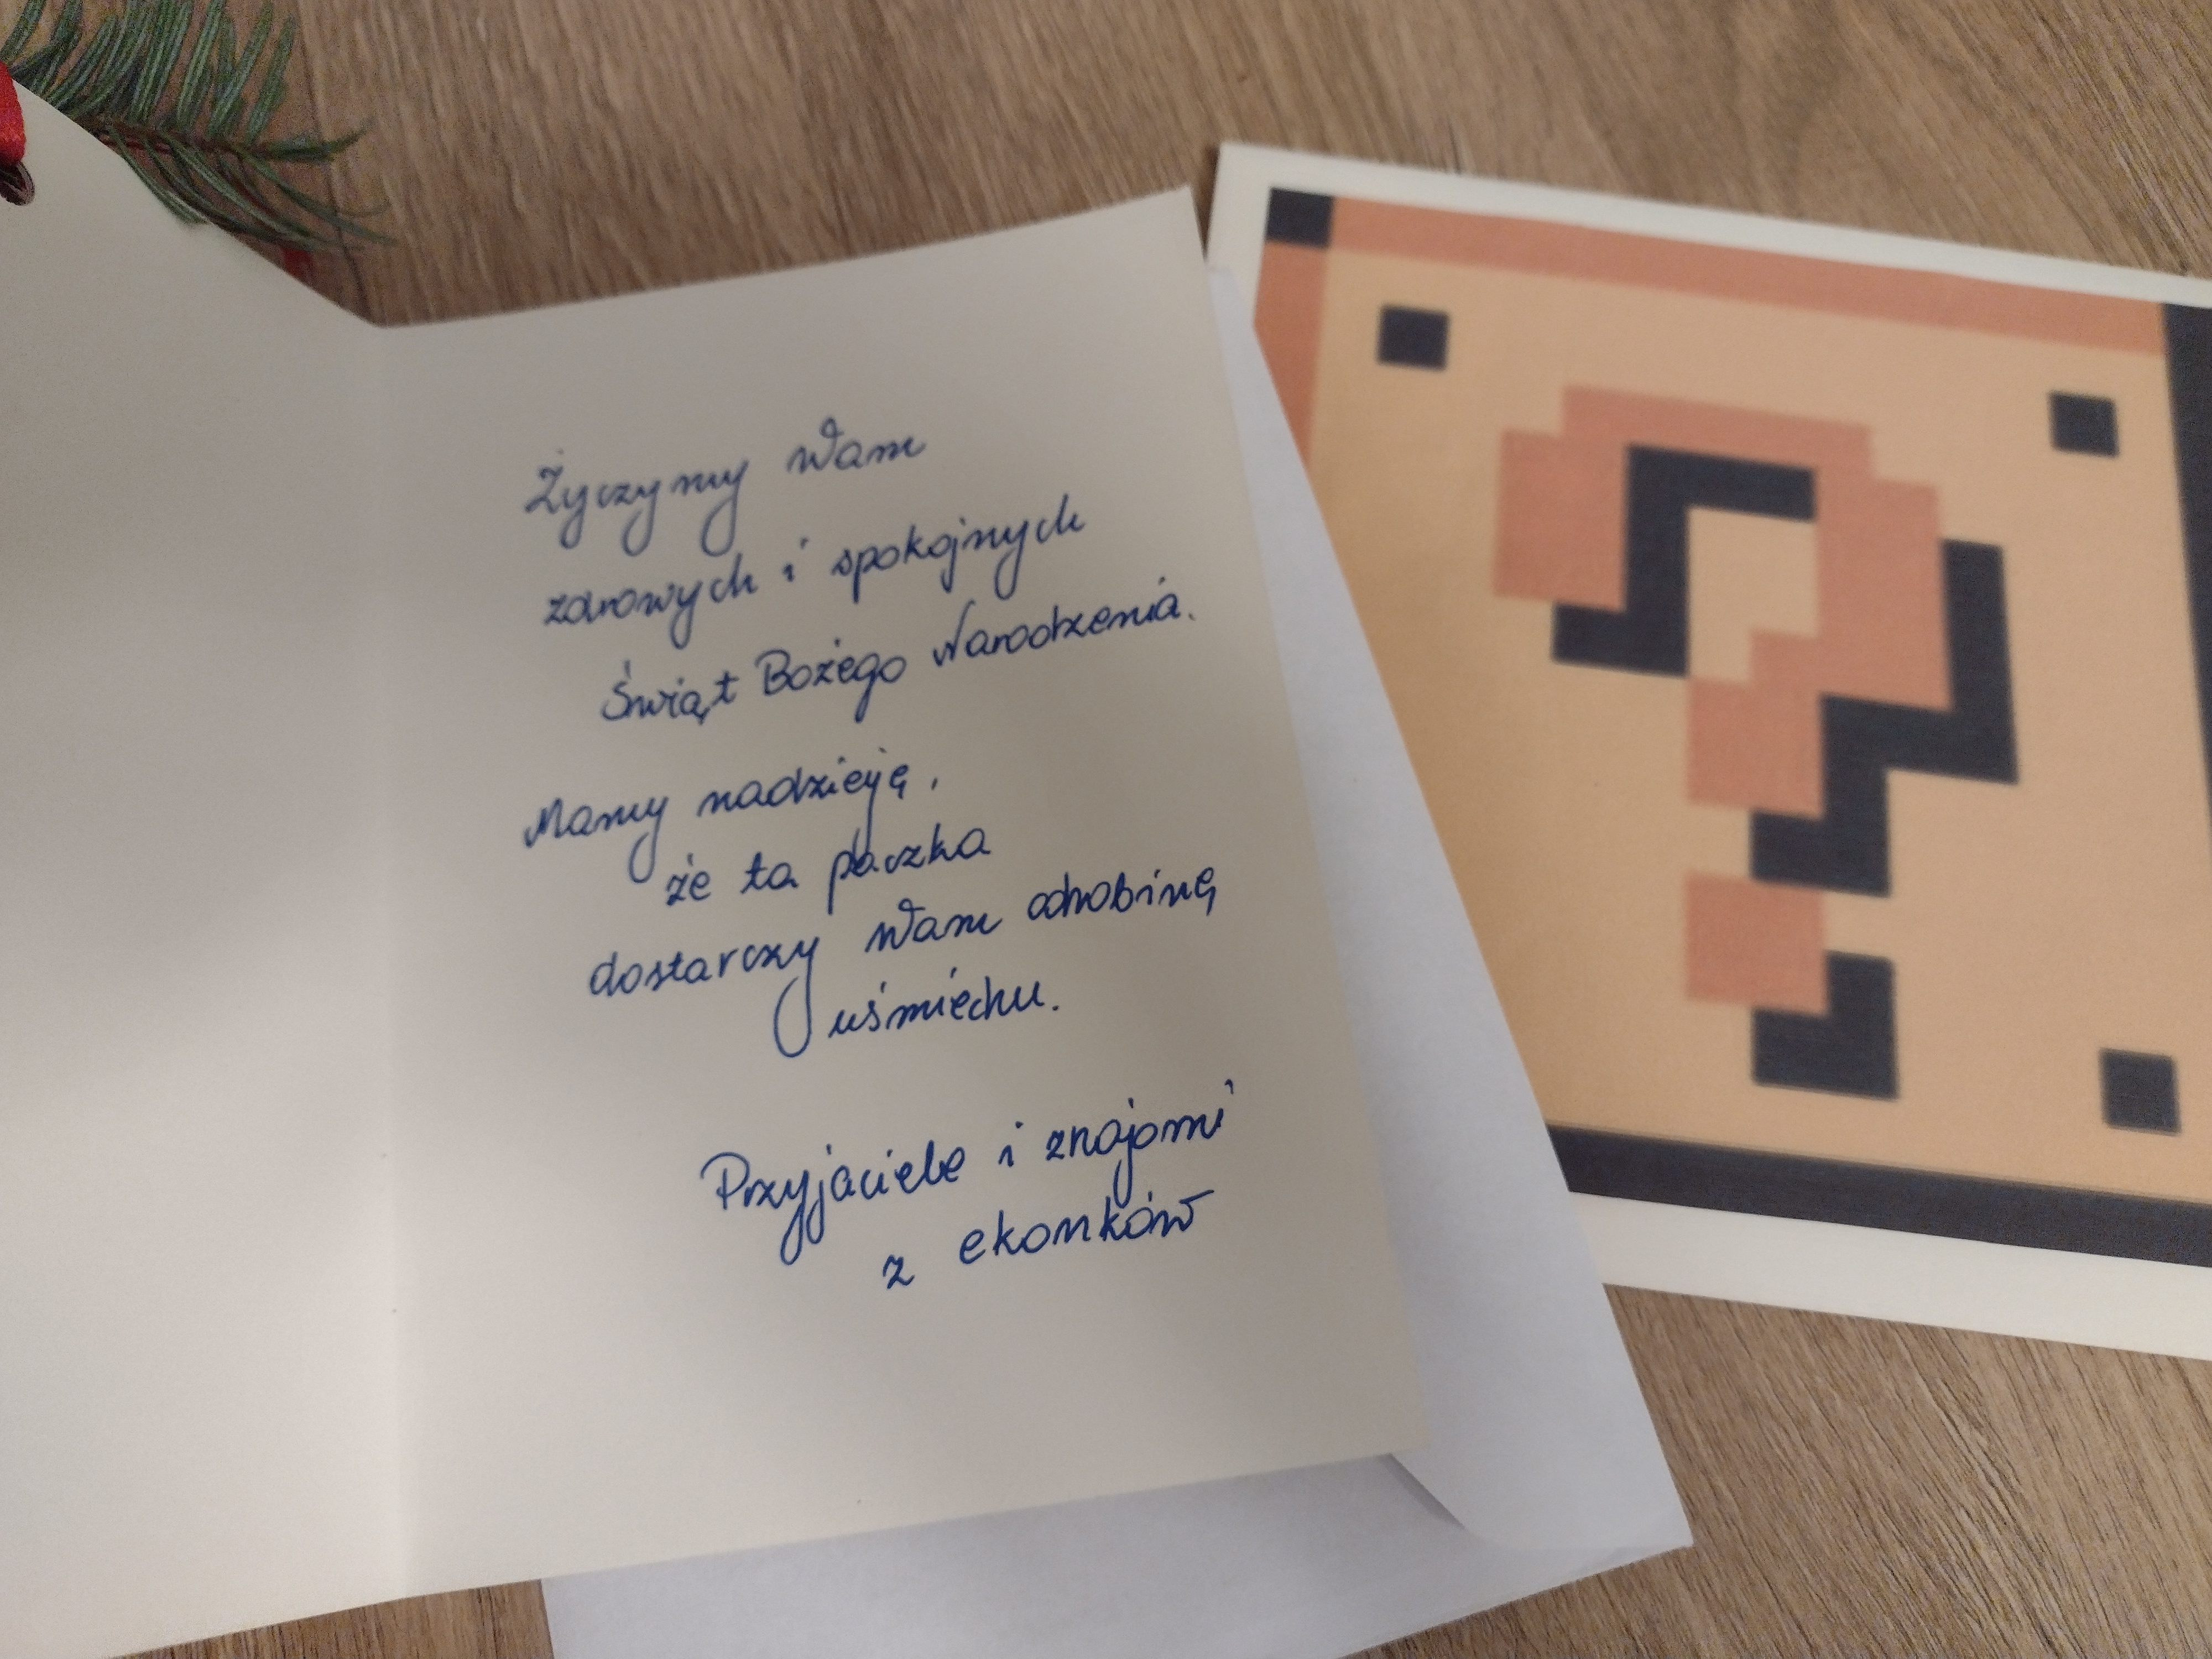 Życzymy Wam
zdrowych i spokojnych
Świąt Bożego Narodzenia.
Mamy nadzieję,
że ta paczka
dostarczy Wam odrobinę
uśmiechu.
Przyjaciele i znajomi
z ekonków
?